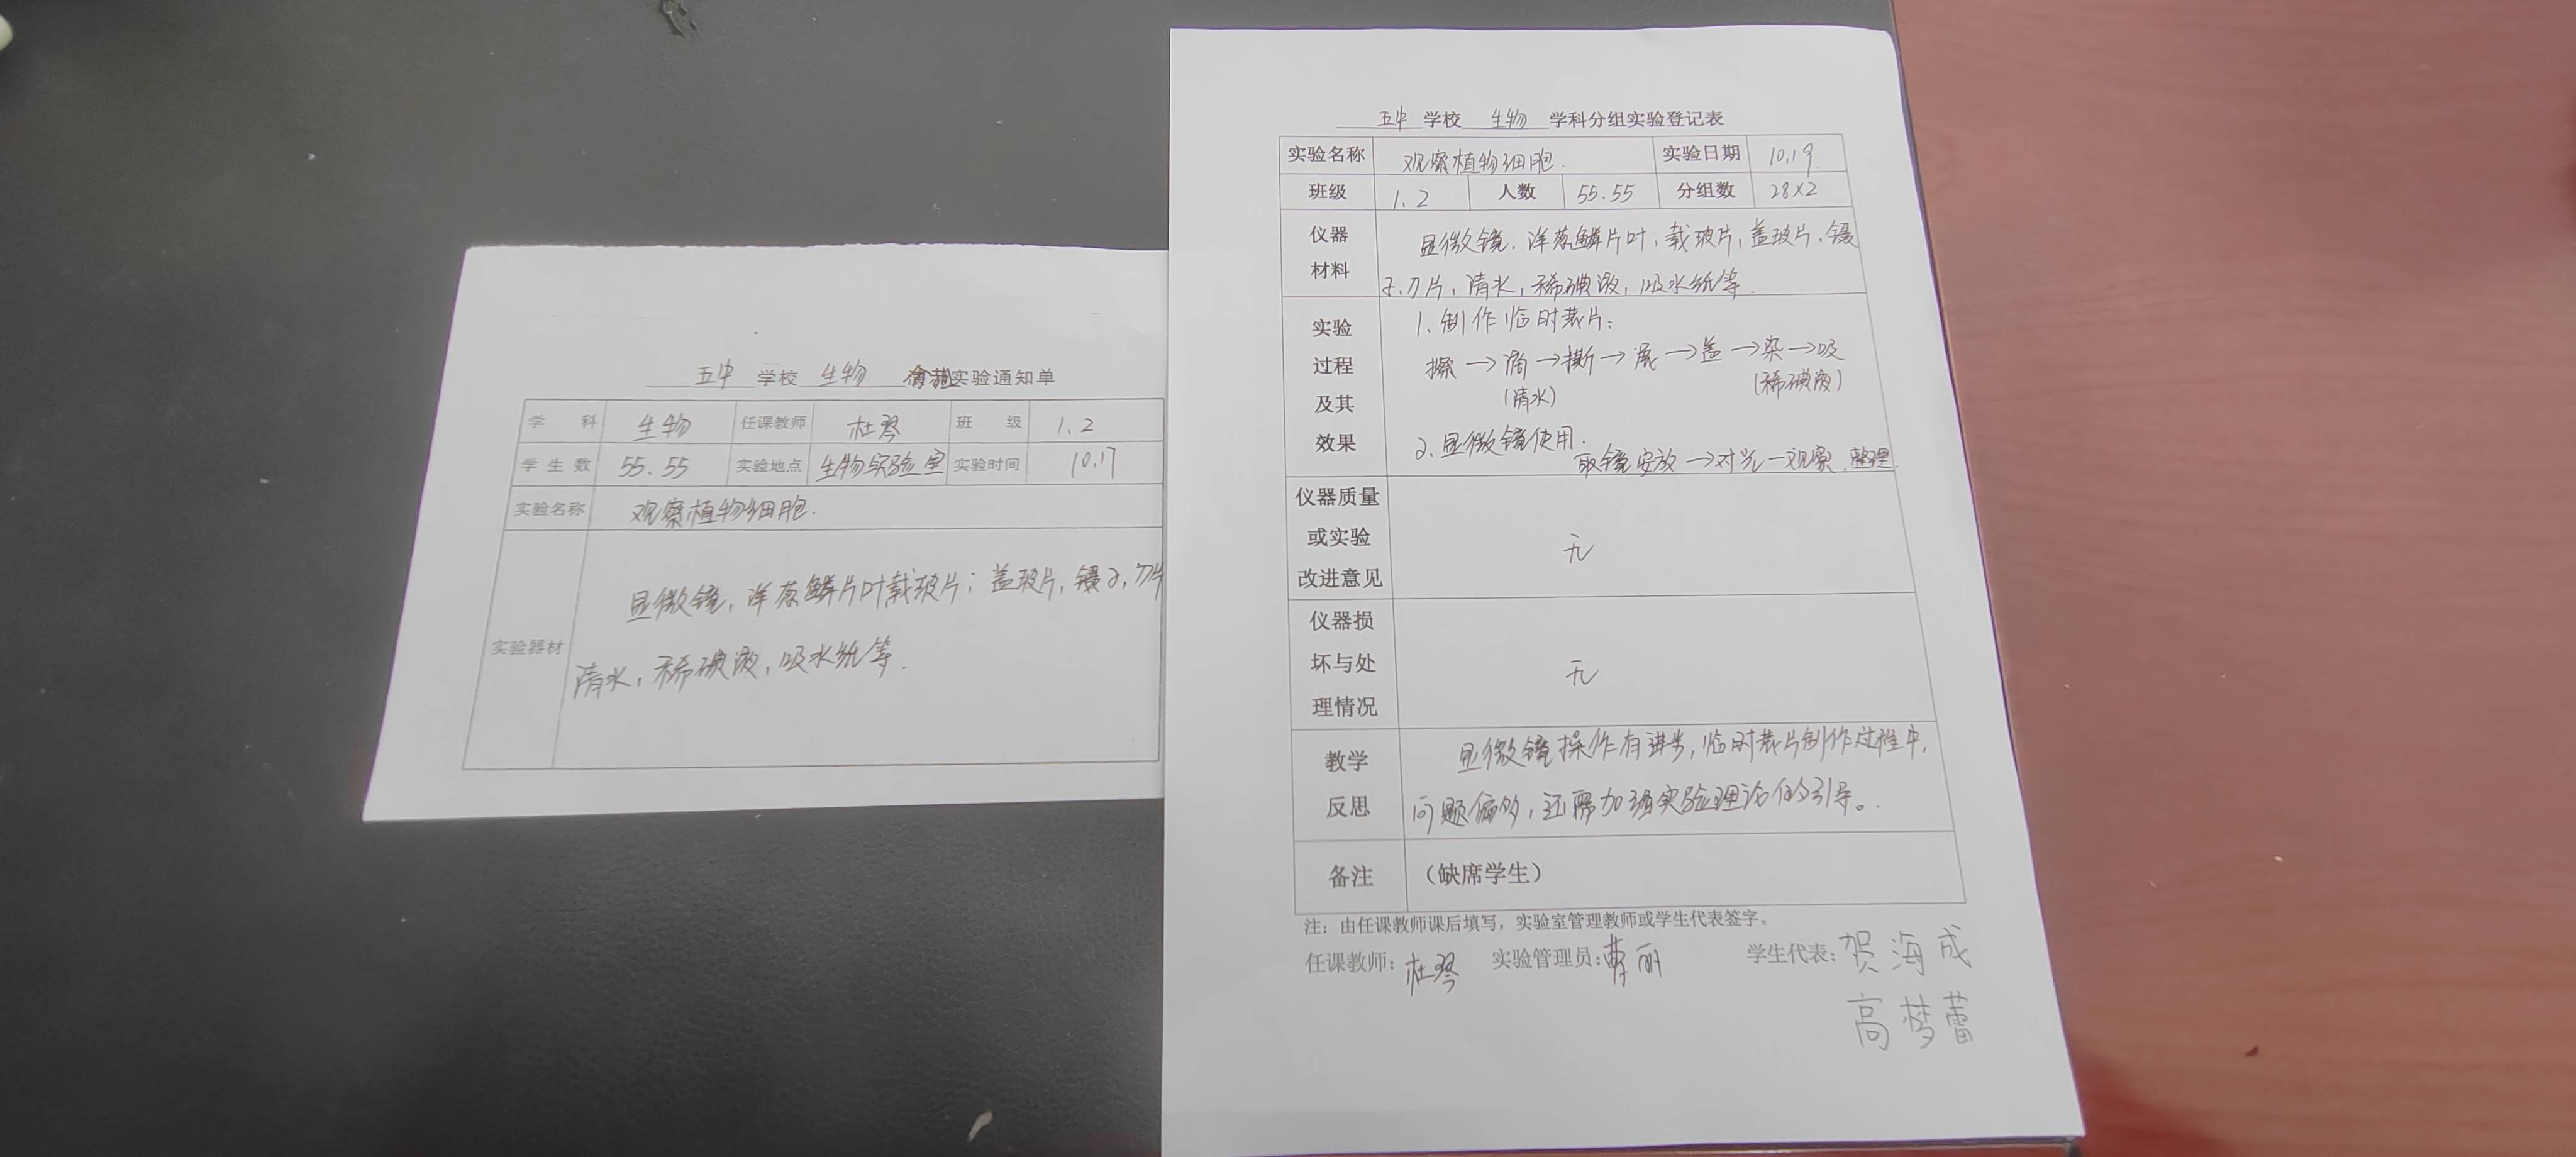 五中 学校 生物 实验通知单
学 科 生物 任课教师 杜琴 班 级 1.2
学生数 55.55 实验地点 生物实验室 实验时间 10.17
实验名称 观察植物细胞.
实验器材 显微镜，洋葱鳞片叶载玻片；盖玻片，镊子，刀片
清水，稀碘液，吸水纸等.
五中 学校 生物 学科分组实验登记表
实验名称 观察植物细胞. 实验日期 10.19.
班级 1.2 人数 55.55 分组数 28×2
仪器
材料
显微镜.洋葱鳞片叶，载玻片，盖玻片，镊
子.刀片，清水，稀碘液，吸水纸等.
实验
过程
及其
效果
1.制作临时装片：
擦→滴→撕→展→盖→染→吸
(清水) (稀碘液)
2.显微镜使用.
取镜安放→对光—观察.整理.
仪器质量
或实验
改进意见
无
仪器损
坏与处
理情况
无
教学
反思
显微镜操作有进步，临时装片制作过程中，
问题偏多，还需加强实验理论的引导。
备注 （缺席学生）
注：由任课教师课后填写，实验室管理教师或学生代表签字。
任课教师：杜琴 实验管理员：曹丽 学生代表：贺海成
高梦蕾